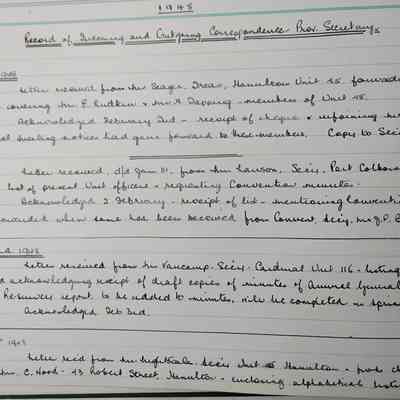 1945
Record of Incoming and Outgoing Correspondence - Prov. Secretary
Letter received from Mr Seager, Treas, Hamilton Unit
covering Mr. E. Rudkin & Mr. H. - members of Unit
Acknowledged February 2nd - receipt of cheque & informing
meeting notices had gone forward to these members. Copy to
Letter received, d/d Jan 31, from Mr Lawson, Sec'y, Port Colborne
list of present Unit officers - requesting Convention minutes.
Acknowledged 2 February - receipt of list - mentioning Convention
when same had been received from Convent. Sec'y. Mr J.P.
Letter received from Mr Vancamp - Sec'y - Cardinal Unit 116 - listing
acknowledging receipt of draft copies of minutes of Annual General
Resources report to be added to minutes, will be completed in
Acknowledged Feb 3rd.
Letter rec'd from Mr Nightingale, Sec'y Unit Hamilton -
Mr. C. Hood - 43 Robert Street, Hamilton - enclosing alphabetical